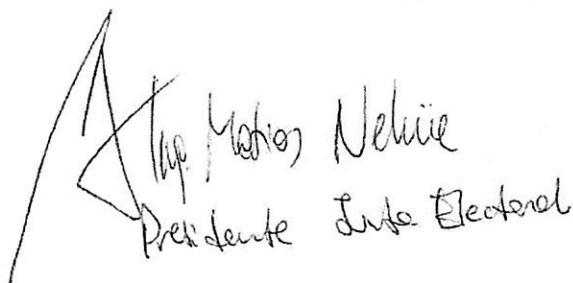 Ing. Matías
Presidente Junta Electoral